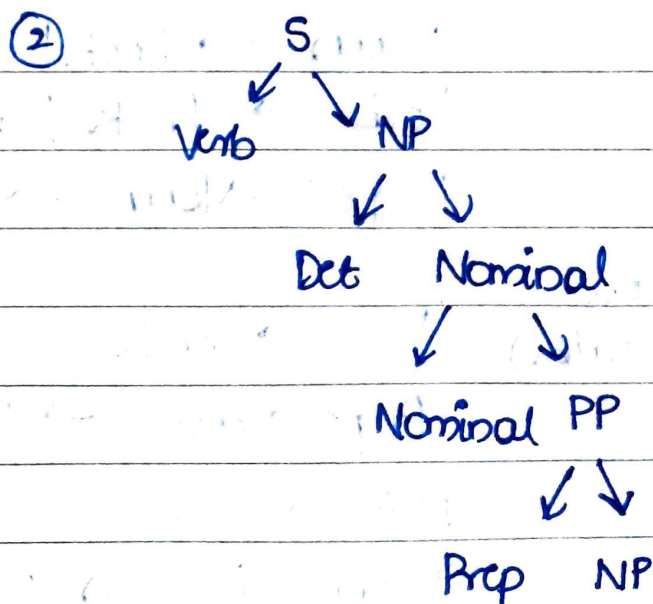 ② S
Verb NP
Det Nominal
Nominal PP
Prep NP